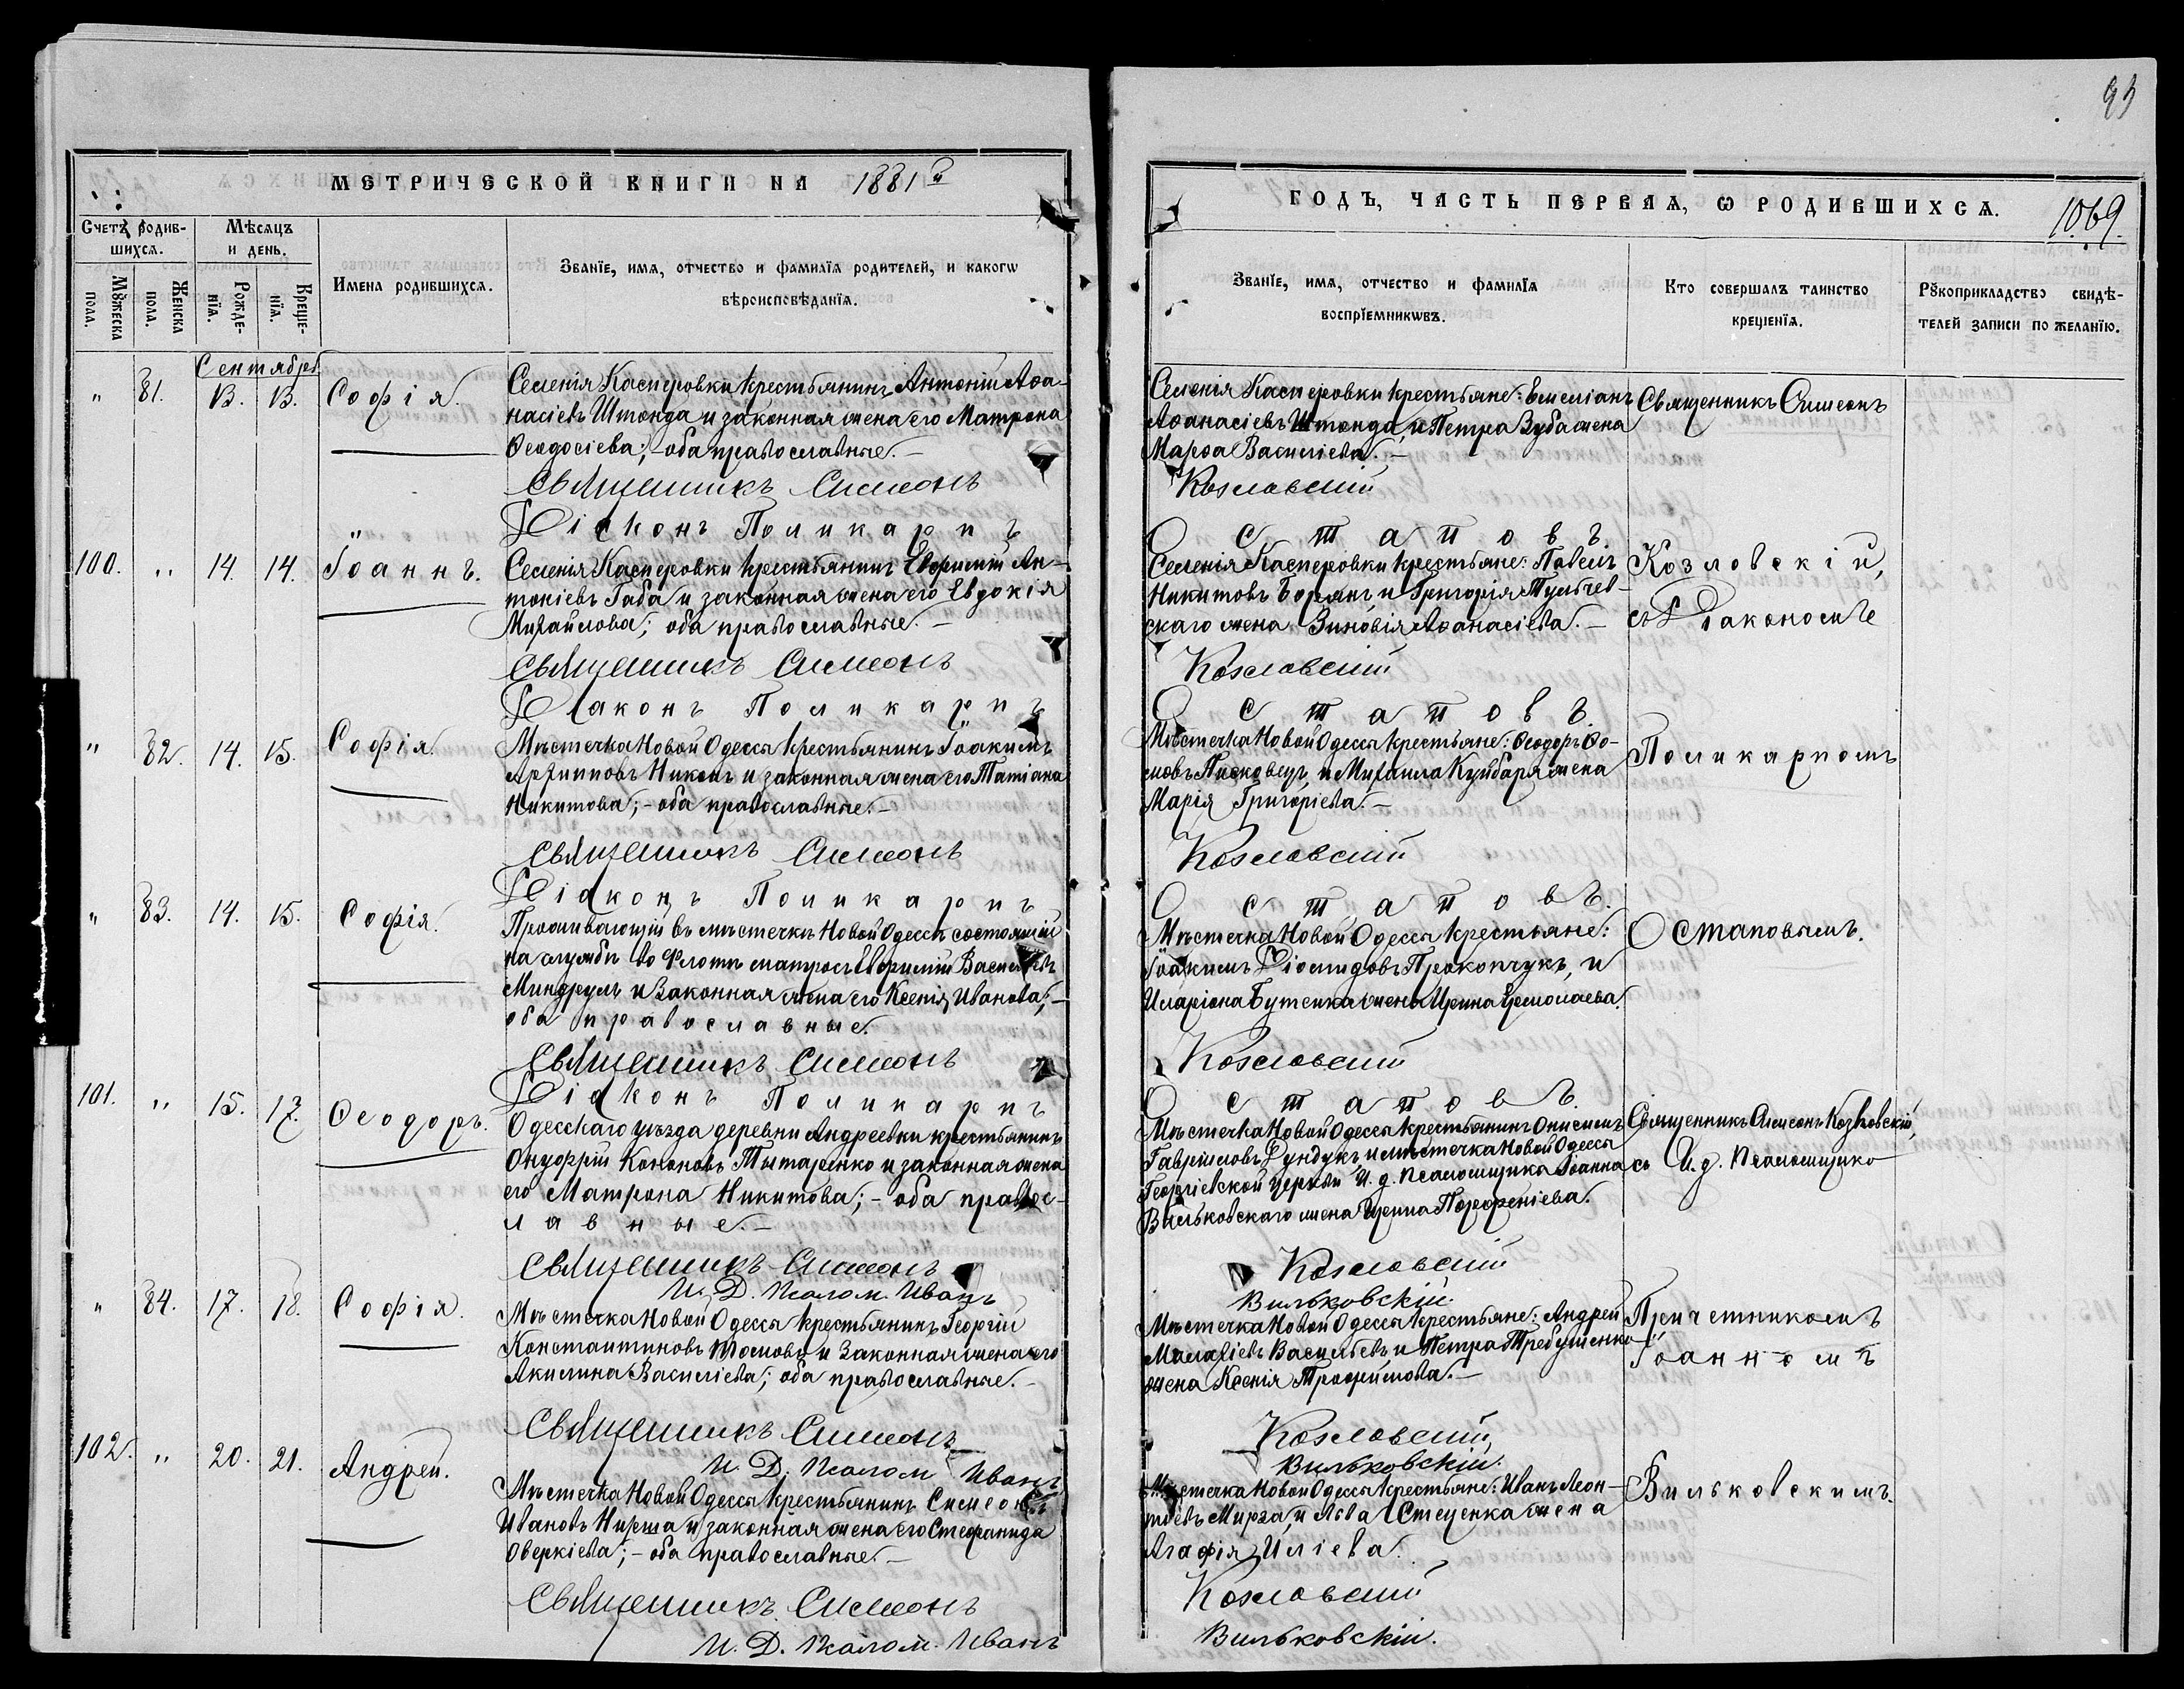 93
МЕТРИЧЕСКОЙ КНИГИ НА 1881й
Счетъ родив-
шихся.
Мѣсяцъ
и день.
Имена родившихся.
Званїе, имя, отчество и фамилїя родителей, и какогѡ
вѣроисповѣданїя.
Мꙋжеска
пола.
Женска
пола.
Рожде-
нїя.
Креще-
нїя.
Сентябрь
" 81. 13. 13. Софія.
Селенія Касперовки крестьянинъ Антоній Аѳа-
насіевъ Штонда и законная жена его Матрона
Ѳеодосіева; - оба православные. -
Священникъ Симеонъ
Діаконъ Поликарпъ
100. " 14. 14. Іоаннъ.
Селенія Касперовки крестьянинъ Евфимій Ан-
тоніевъ Габа и законная жена его Евдокія
Михайлова; оба православные. -
Священникъ Симеонъ
Діаконъ Поликарпъ
" 82. 14. 15. Софія.
Мѣстечка Новой Одессы крестьянинъ Іоакимъ
Архипповъ Никонъ и законная жена его Татіана
Никитова; - оба православные. -
Священникъ Симеонъ
Діаконъ Поликарпъ
" 83. 14. 15. Софія.
Проживающій въ мѣстечкѣ Новой Одессѣ состоящій
на службѣ во Флотѣ матросъ Евфимій Васильевъ
Миндруль и законная жена его Ксенія Иванова; -
оба православные.
Священникъ Симеонъ
Діаконъ Поликарпъ
101. " 15. 17. Ѳеодоръ.
Одесскаго уѣзда деревни Андреевки крестьянинъ
Онуфрій Кононовъ Тытаренко и законная жена
его Матрона Никитова; - оба правос-
лавные. -
Священникъ Симеонъ
И. Д. Псалом. Иванъ
" 84. 17. 18. Софія.
Мѣстечка Новой Одессы крестьянинъ Георгій
Константиновъ и законная жена его
Акилина Василіева; оба православные. -
Священникъ Симеонъ
И. Д. Псалом Иванъ
102. " 20. 21. Андрей.
Мѣстечка Новой Одессы крестьянинъ Симеонъ
Ивановъ Нирша и законная жена его Стефанида
Оверкіева; - оба православные. -
Священникъ Симеонъ
И. Д. Псалом. Иванъ
ГОДЪ, ЧАСТЬ ПЕРВАЯ, Ѡ РОДИВШИХСЯ.
1069.
Званїе, имя, отчество и фамилїя
воспрїемникѡвъ.
Кто совершалъ таинство
крещенїя.
Рꙋкоприкладство свидѣ-
телей записи по желанїю.
Селенія Касперовки крестьяне: Емеліанъ
Аѳанасіевъ Штонда, и Петра Зуба жена
Марѳа Василіева. -
Священникъ Симеонъ
Козловскій
Остаповъ.
Селенія Касперовки крестьяне: Павелъ
Никитовъ Борянъ, и Григорія Тульчев-
скаго жена Зиновія Аѳанасіева. -
Козловскій,
съ Діакономъ
Козловскій
Остаповъ.
Мѣстечка Новой Одессы крестьяне: Ѳеодоръ Ѳо-
мовъ Писковецъ, и Михаила Куйбаря жена
Марія Григоріева. -
Поликарпомъ
Козловскій
Остаповъ.
Мѣстечка Новой Одессы крестьяне:
Іоакимъ Діомидовъ Прокопчукъ, и
Иларіона Бутенка жена Ирина Ермолаева.
Остаповымъ.
Козловскій
Остаповъ.
Мѣстечка Новой Одессы крестьянинъ Онисимъ
Гавріиловъ Фундукъ и мѣстечка Новой Одессы
Георгіевской Церкви И. д. псаломщика Іоанна
Вильковскаго жена Ирина Порфеніева.
Священникъ Симеонъ Козловскій,
съ И. д. псаломщика
Козловскій
Вильковскій.
Мѣстечка Новой Одессы крестьяне: Андрей
Малахіевъ Васильевъ, и Петра Требушенко
жена Ксенія Трофимова. -
Причетникомъ
Іоанномъ
Козловскій,
Вильковскій.
Мѣстечка Новой Одессы крестьяне: Иванъ Леон-
тіевъ Мирза, и Льва Стеценка жена
Агафія Иліева.
Вильковскимъ.
Козловскій
Вильковскій.